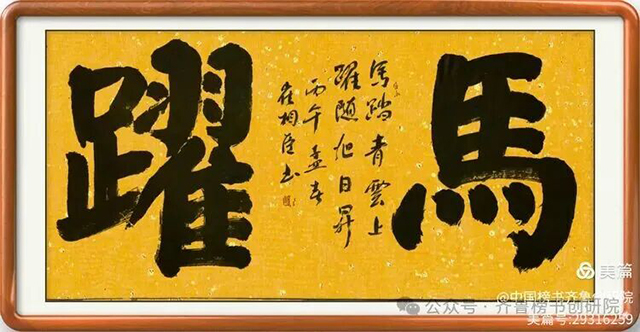 馬
馬踏青雲上
躍随旭日昇
丙午孟春
崔相臣书
躍
美篇
@中国榜书齐鲁创研院
公众号·齐鲁榜书创研院
美篇号:29316259